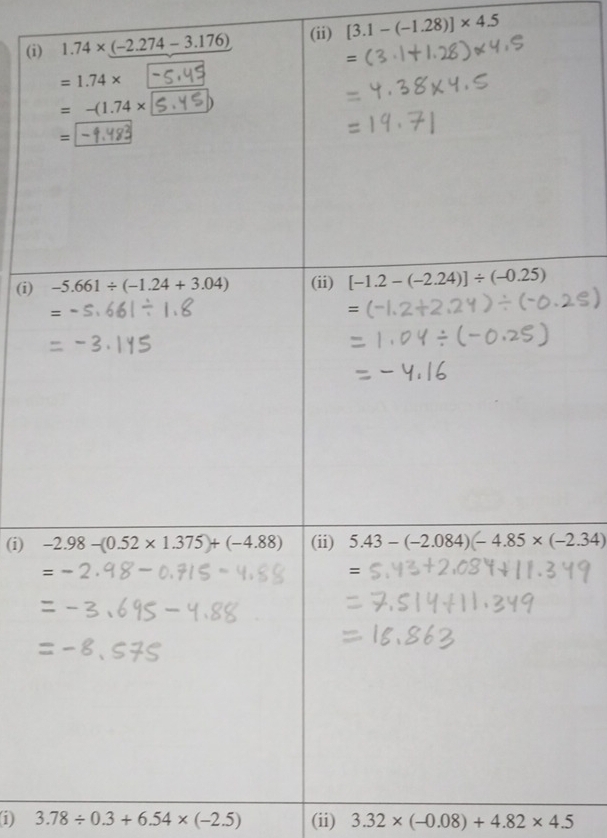 (i) 1.74 × (–2.274 – 3.176)
= 1.74 × -5.45
= –(1.74 × 5.45)
= -9.483
(ii) [3.1 – (–1.28)] × 4.5
= (3.1+1.28)×4.5
= 4.38×4.5
= 19.71
(i) –5.661 ÷ (–1.24 + 3.04)
= -5.661 ÷ 1.8
= -3.145
(ii) [–1.2 – (–2.24)] ÷ (–0.25)
= (-1.2+2.24) ÷ (-0.25)
= 1.04 ÷ (-0.25)
= -4.16
(i) –2.98 –(0.52 × 1.375)+ (–4.88)
= -2.98 - 0.715 - 4.88
= -3.695 - 4.88
= -8.575
(ii) 5.43 – (–2.084)(– 4.85 × (–2.34)
= 5.43+2.084+11.349
= 7.514+11.349
= 18.863
(i) 3.78 ÷ 0.3 + 6.54 × (–2.5)
(ii) 3.32 × (–0.08) + 4.82 × 4.5